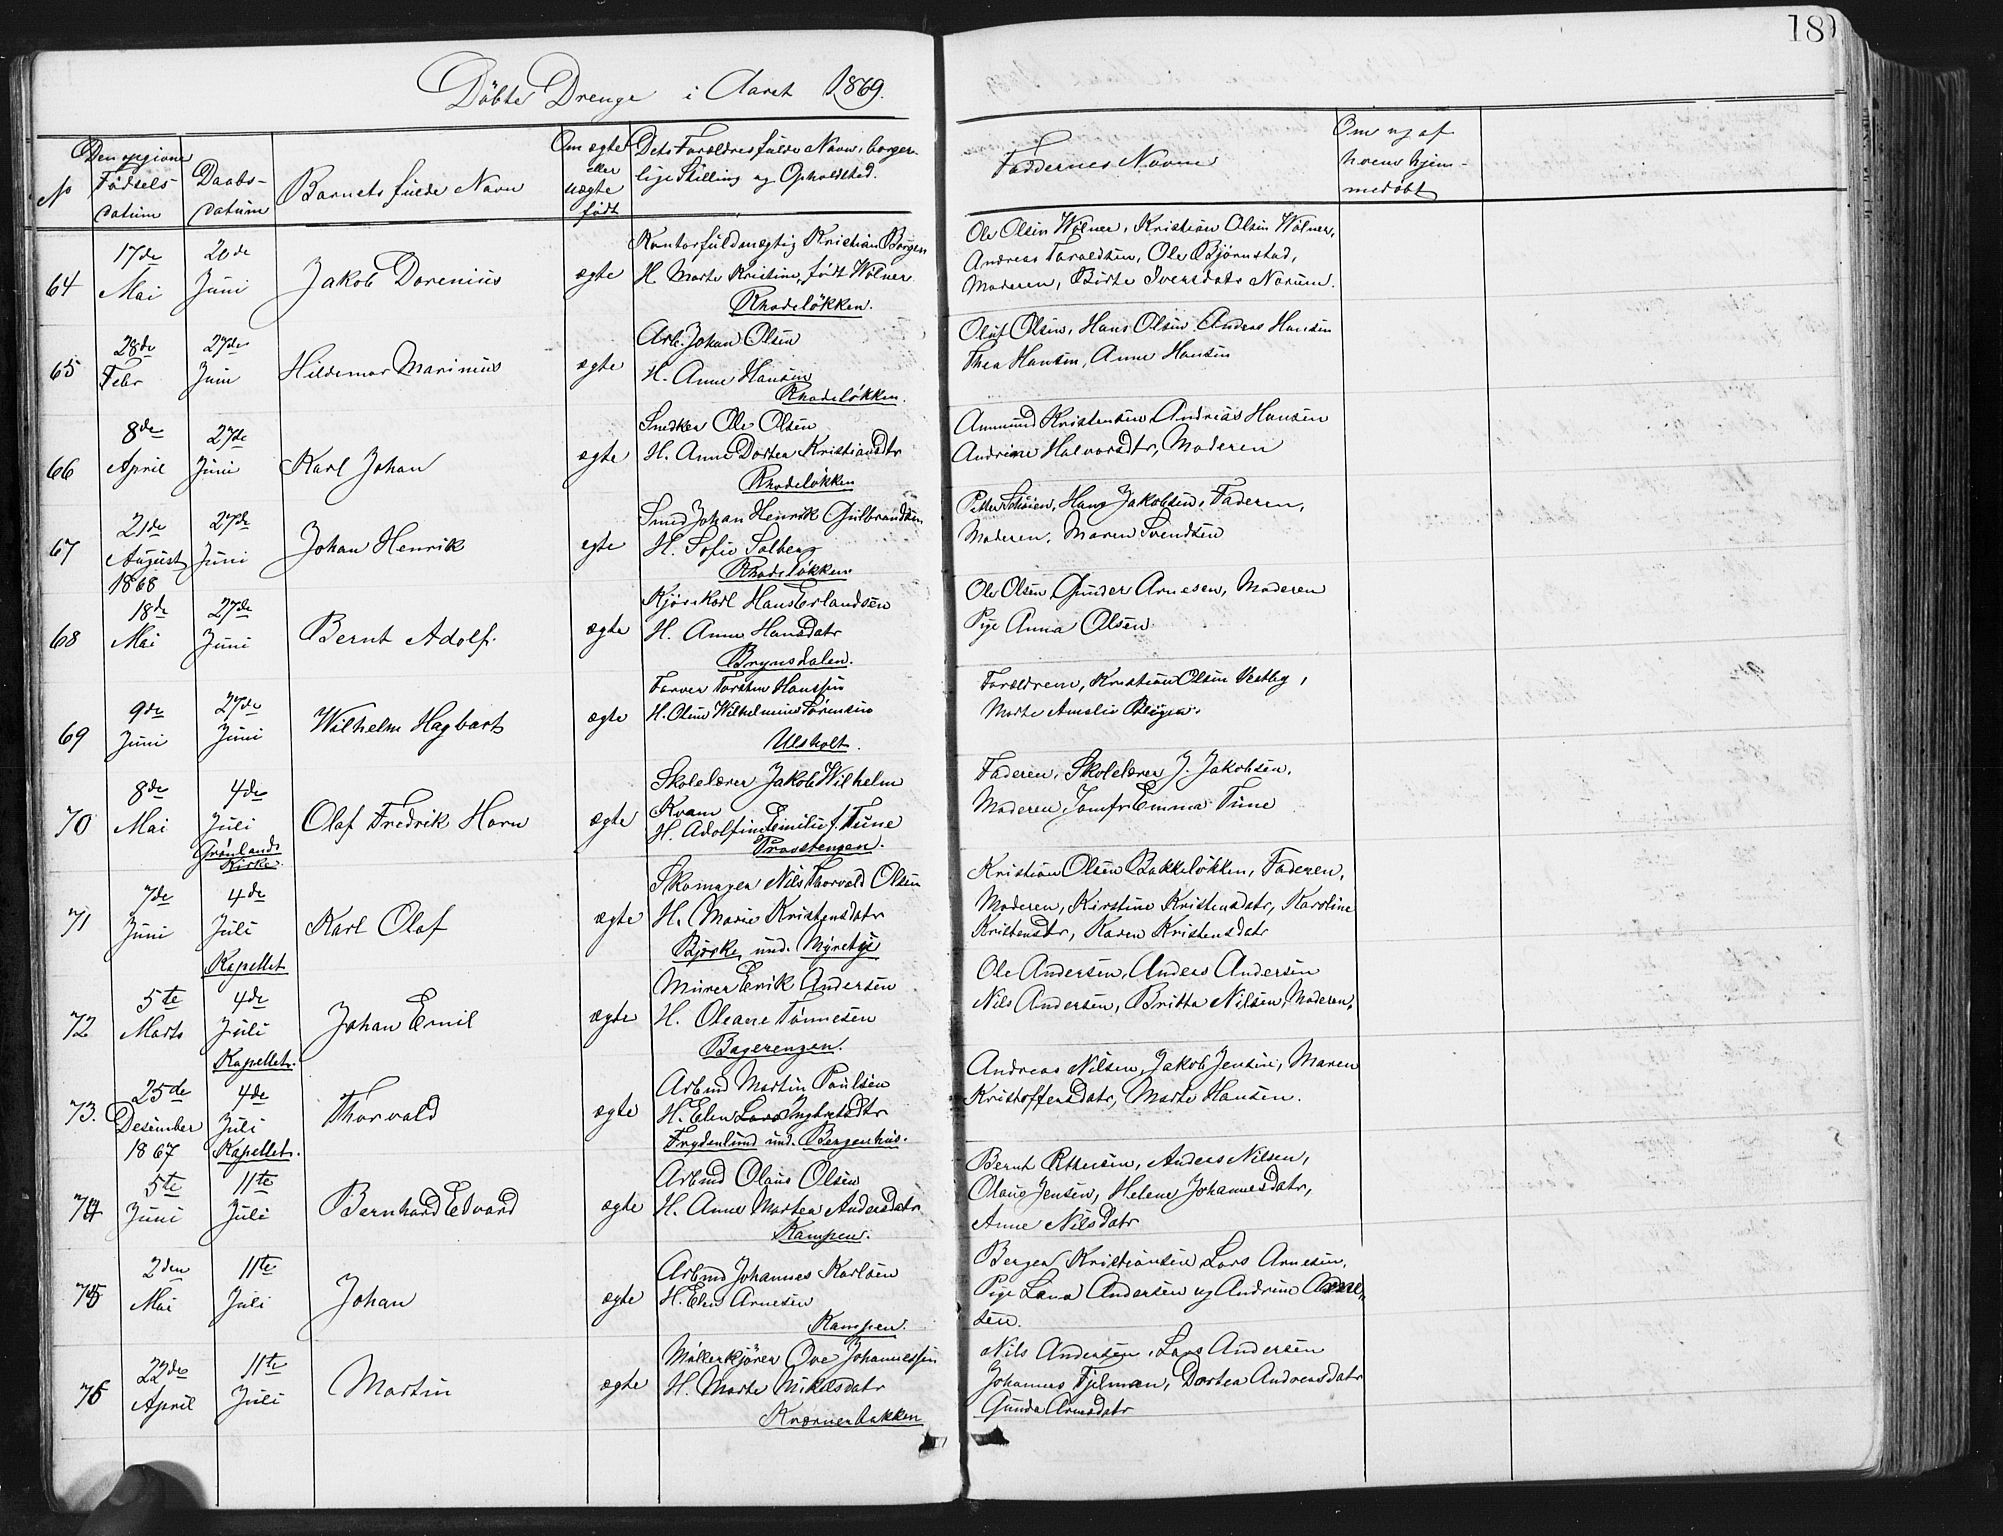 18
Döbte Drenge i Aaret 1869.
No
Den opgivne Fødsels-datum
Daabs-datum
Barnets fulde Navn
Om ægte eller uægte født
Dets Forældres fulde Navn, borger-lige Stilling og Opholdsted.
Faddernes Navne
Om og af hvem hjem-medöbt
64
17de Mai
20de Juni
Jakob Dorenius
ægte
Kontorfuldmægtig Kristian Borgen
H. Marte Kristine, født Wølner
Rhodeløkken.
Ole Olsen Wølner, Kristian Olsen Wølner,
Andreas Taraldsen, Ole Bjørnstad,
Moderen, Birte Iversdatr Norum.
65
28de Febr
27de Juni
Hildemar Marinius
ægte
Arb. Johan Olsen
H. Anne Hansen
Rhodeløkken.
Oluf Olsen, Hans Olsen, Anders Hansen
Thea Hansen, Anne Hansen
66
8de April
27de Juni
Karl Johan
ægte
Snedker Ole Olsen
H. Anne Dortea Kristiansdtr
Rhodeløkken
Ammund Kristensen Andreas Hansen
Andrine Halvorsdtr, Moderen
67
21de August 1868
27de Juni
Johan Henrik
egte
Smed Johan Henrik Gulbrandsen
H. Sofie Solberg
Rhodeløkken
Petter Schøien, Hans Jakobsen, Faderen,
Moderen, Maren Svendsen
68
18de Mai
27de Juni
Bernt Adolf.
ægte
Kjørekarl Hans Erlandsen
H. Anne Hansdatr
Brynsdalen.
Ole Olsen, Gunder Arnesen, Moderen
Pige Anna Olsen
69
9de Juni
27de Juni
Wilhelm Hagbart
ægte
Farver Torsten Hanssen
H. Oline Wilhelmine Sørensen
Ulsholt.
Forældrene, Kristian Olsen Vestby,
Marte Amalie
70
8de Mai
4de Juli
Grønlands Kirke.
Olaf Fredrik Horn
ægte
Skolelærer Jakob Wilhelm
Kvam
H. Adolfine Emilie f. Tune
Provstengen.
Faderen, Skolelærer J. Jakobsen,
Moderen Jomfr Emma Tune
71
7de Juni
4de Juli
Kapellet
Karl Olaf
ægte
Skomager Nils Thorvald Olsen
H. Marie Kristensdatr
Bjerke, und. Myretye
Kristian Olsen Bakkeløkken, Faderen,
Moderen, Kirstine Kristensdatr, Karoline
Kristensdtr, Karen Kristensdatr
72
5te Marts
4de Juli
Kapellet.
Johan Emil
ægte
Murer Erik Andersen
H. Oleane Tønnesen
Bagerengen.
Ole Andersen, Anders Andersen
Nils Andersen, Britta Nilsen, Moderen,
73.
25de Desember 1867
4de Juli
Kapellet.
Thorvald
ægte
Arbmd Martin Paulsen
H. Elen Ingbretsdtr
Frydenlund und. Bergenhus.
Andreas Nilsen, Jakob Jensen, Maren
Kristoffersdatr, Marte Hansen.
74
5te Juni
11te Juli
Bernhard Edvard
ægte
Arbmd Olaus Olsen
H. Anne Martea Andersdatr.
Kampen.
Bernt Pettersen, Anders Nilsen,
Olaus Jensen, Helene Johannesdatr,
Anne Nilsdatr
75
2den Mai
11te Juli
Johan
ægte
Arbmd Johannes Karlsen
H. Elen Arnesen
Kampen.
Berger Kristiansen Lars Arnesen,
Pige Lava Andersen og Andrine Arne-
sen.
76
22de April
11te Juli
Martin
ægte
Møllerkjører Ove Johannessen
H. Marte Mikelsdatr
Kværnerbakken
Nils Andersen, Lars Andersen
Johannes Fjelman, Dortea Andreasdatr
Gunda Arnesdatr